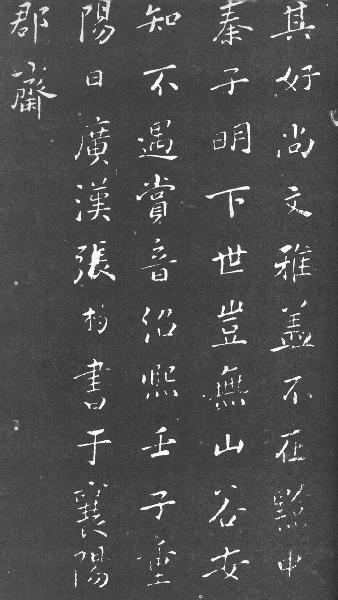 其好尚文雅蓋不在黔中
秦子明下世豈無山谷安
知不遇賞音紹熙壬子重
陽日廣漢張杓書于襄陽
郡齋